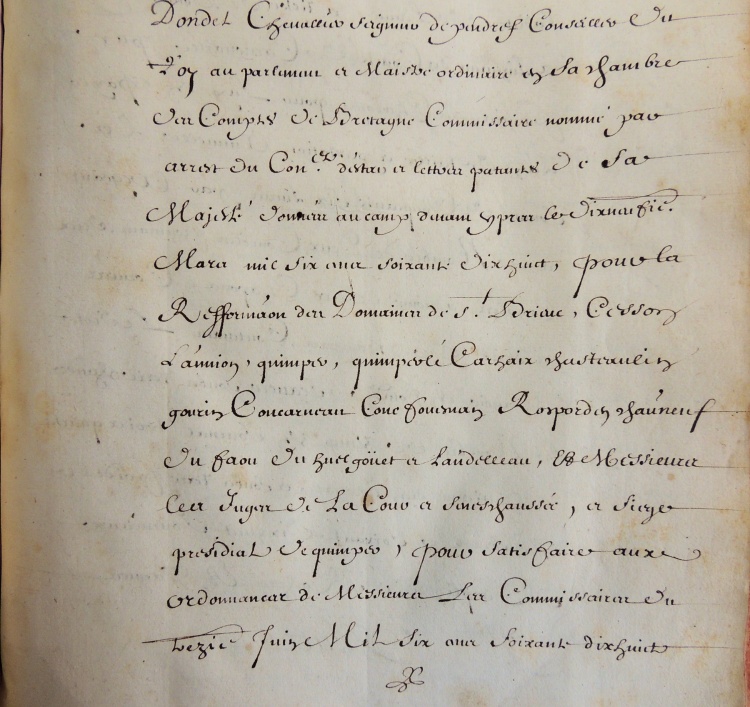 Dondel Chevallier seigneur de pendref Conseiller du
Roy au parlement et Maistre ordinaire en sa chambre
des Comptes de Bretagne Commissaire nommé par
arrest du Con.el destat et lettres patantes de sa
Majesté données au camp devant ypres le dixneufie.
Mars mil six cens soixante dixhuict, pour la
Refformaon des Domaines de st. Brieuc, Cesson
Lannion, quimper, quimperlé Carhaix chasteaulin
gourin Concarneau Concfouesnan Rosporden chauneuf
du faou du huelgöuet et Landelleau, Et Messieurs
les Juges de La Cour et seneschaussée, et siege
presidial de quimper, pour satisfaire aux
ordonnances de Messieurs Les Commissaires du
trezie Juin Mil six cens soixante dixhuict